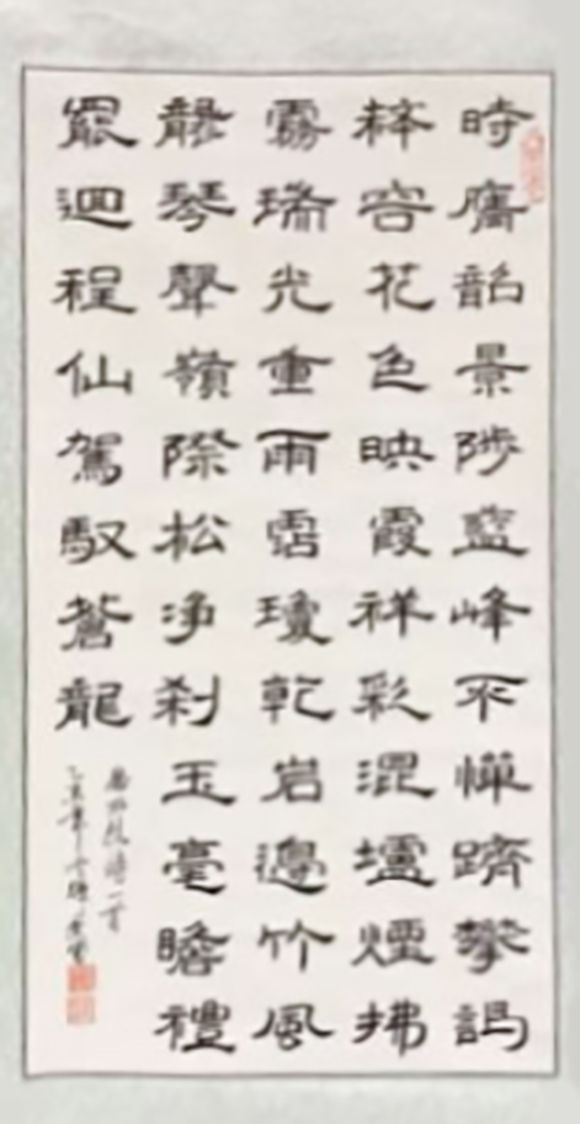 時膺韶景陟藍峰不憚躋攀謁
梓容花色映霞祥彩混壚煙拂
霧瑞光重雨霑瓊乾岩邊竹風
襲琴聲嶺際松净刹玉毫瞻禮
罷迴程仙駕馭蒼龍